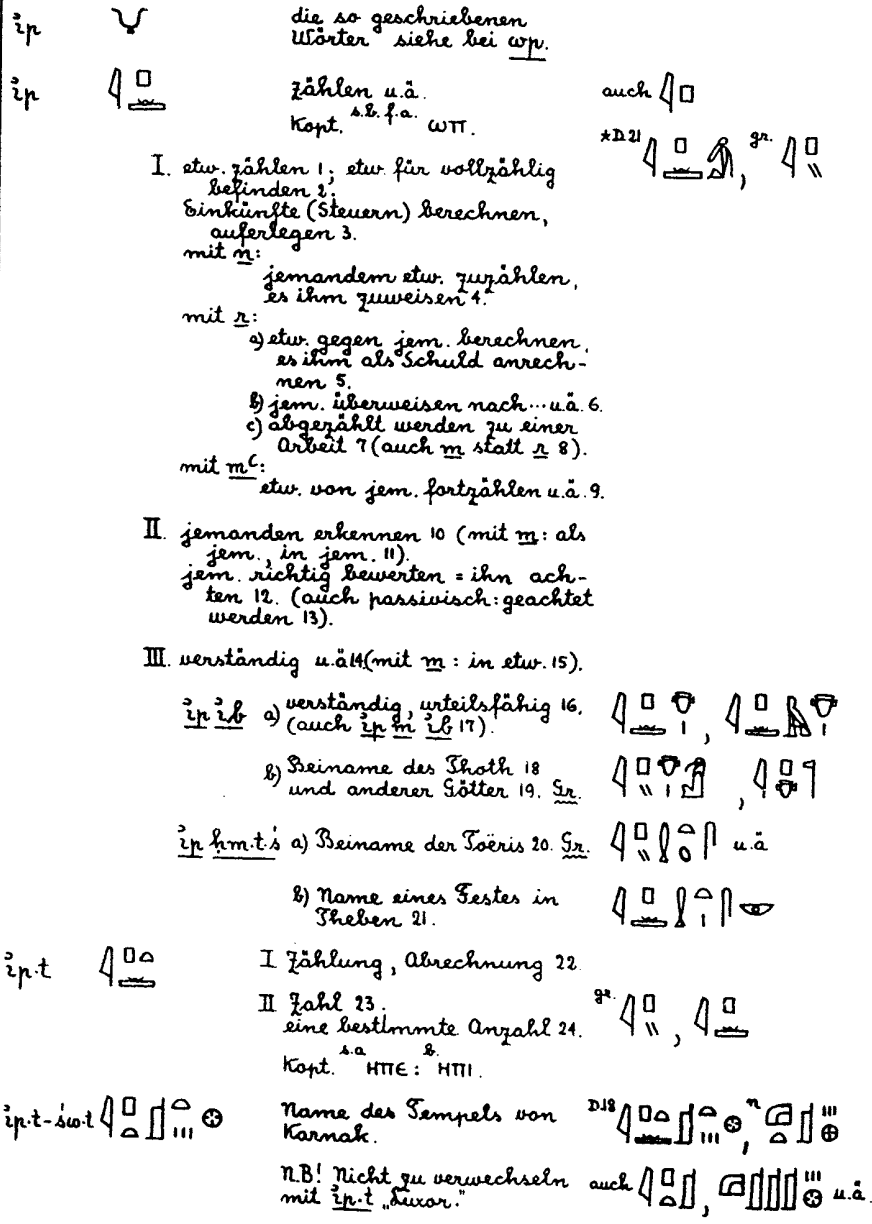 i͗p die so geschriebenen
Wörter siehe bei wp.
i͗p zählen u.ä. auch
Kopt. s.b.f.a. ⲱⲡ.
*D.21 , gr.
I. etw. zählen 1; etw. für vollzählig
befinden 2.
Einkünfte (Steuern) berechnen,
auferlegen 3.
mit n:
jemandem etw. zuzählen,
es ihm zuweisen 4.
mit r:
a) etw. gegen jem. berechnen,
es ihm als Schuld anrech-
nen 5.
b) jem. überweisen nach... u.ä. 6.
c) abgezählt werden zu einer
Arbeit 7 (auch m statt r 8).
mit mꜥ:
etw. von jem. fortzählen u.ä. 9.
II. jemanden erkennen 10 (mit m: als
jem., in jem. 11).
jem. richtig bewerten = ihn ach-
ten 12. (auch passivisch: geachtet
werden 13).
III. verständig u.ä 14 (mit m: in etw. 15).
i͗p i͗b a) verständig, urteilsfähig 16. ,
(auch i͗p m i͗b 17).
b) Beiname des Thoth 18
und anderer Götter 19. Gr. ,
i͗p ḥm.t.ś a) Beiname der Toëris 20. Gr. u.ä
b) Name eines Festes in
Theben 21.
i͗p.t I Zählung, Abrechnung 22.
II Zahl 23. gr. ,
eine bestimmte Anzahl 24.
Kopt. s.a ⲏⲡⲉ : b. ⲏⲡⲓ.
i͗p.t-św.t Name des Tempels von D.18 , n
Karnak.
N.B! Nicht zu verwechseln auch , u.ä.
mit i͗p.t „Luxor."